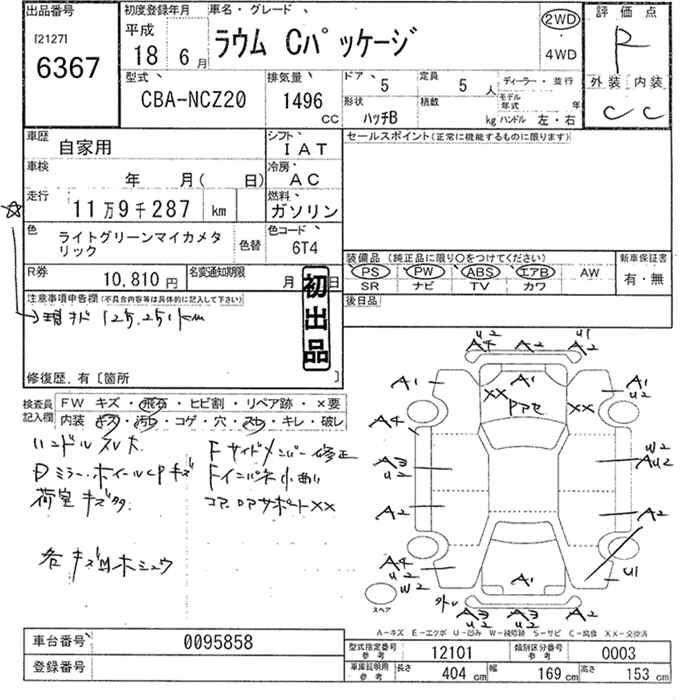 出品番号
[2127]
6367
初度登録年月
平成
18 6月
車名・グレード
ラウム Cパッケージ
2WD
4WD
評価点
R
外装 内装
C C
型式
CBA-NCZ20
排気量
1496
CC
ドア 5
定員 5 人
ディーラー・並行
形状
ハッチB
積載
kg
モデル年式 年
ハンドル 左・右
車歴
自家用
シフト
IAT
セールスポイント(正常に機能するものに限ります)
車検
年 月( 日)
冷房
AC
走行
11万9千287 km
燃料
ガソリン
色
ライトグリーンマイカメタ
リック
色替
色コード
6T4
装備品(純正品に限り○をつけてください)
PS PW ABS エアB AW
SR ナビ TV カワ
新車保証書
有・無
R券
10,810 円
名変通知期限
月 日
後日品
初出品
注意事項申告欄(不具合内容等は具体的に記入して下さい)
現状 125,251km
修復歴.有〔箇所
検査員
記入欄
FW キズ・飛石・ヒビ割・リペア跡・×要
内装 キズ・汚れ・コゲ・穴・スレ・キレ・破レ
ハンドルスレ大
Dミラー・ホイールCPキズ
荷室キズ多
Fサイドメンバー修正
Fインパネ小曲り
コアロアサポートXX
各キズ凹ホシュウ
A2 A2
A4 A2 A2
u2 u1
A1 A1 A1
u2
XX XX
A4
A3
u2
W2
Au2
A2 A2
A4
u2
W2
A1
U1
A3 A3 A2
u2 u2
スペア
A-キズ E-エクボ U-凹み W-補修跡 S-サビ C-腐食 XX-交換済
車台番号
0095858
登録番号
型式指定番号
参考
12101
類別区分番号
参考
0003
車庫証明用
参考
長さ 404 cm
幅 169 cm
高さ 153 cm